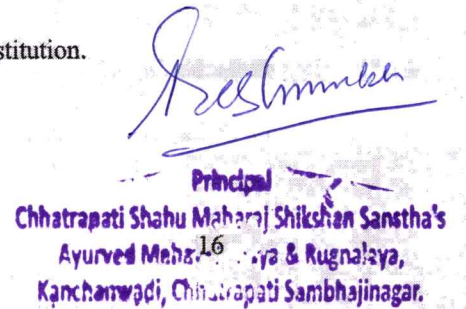 stitution.
Principal
Chhatrapati Shahu Maharaj Shikshan Sanstha's
Ayurved 16 & Rugnalaya,
Kanchanwadi, Chhatrapati Sambhajinagar.